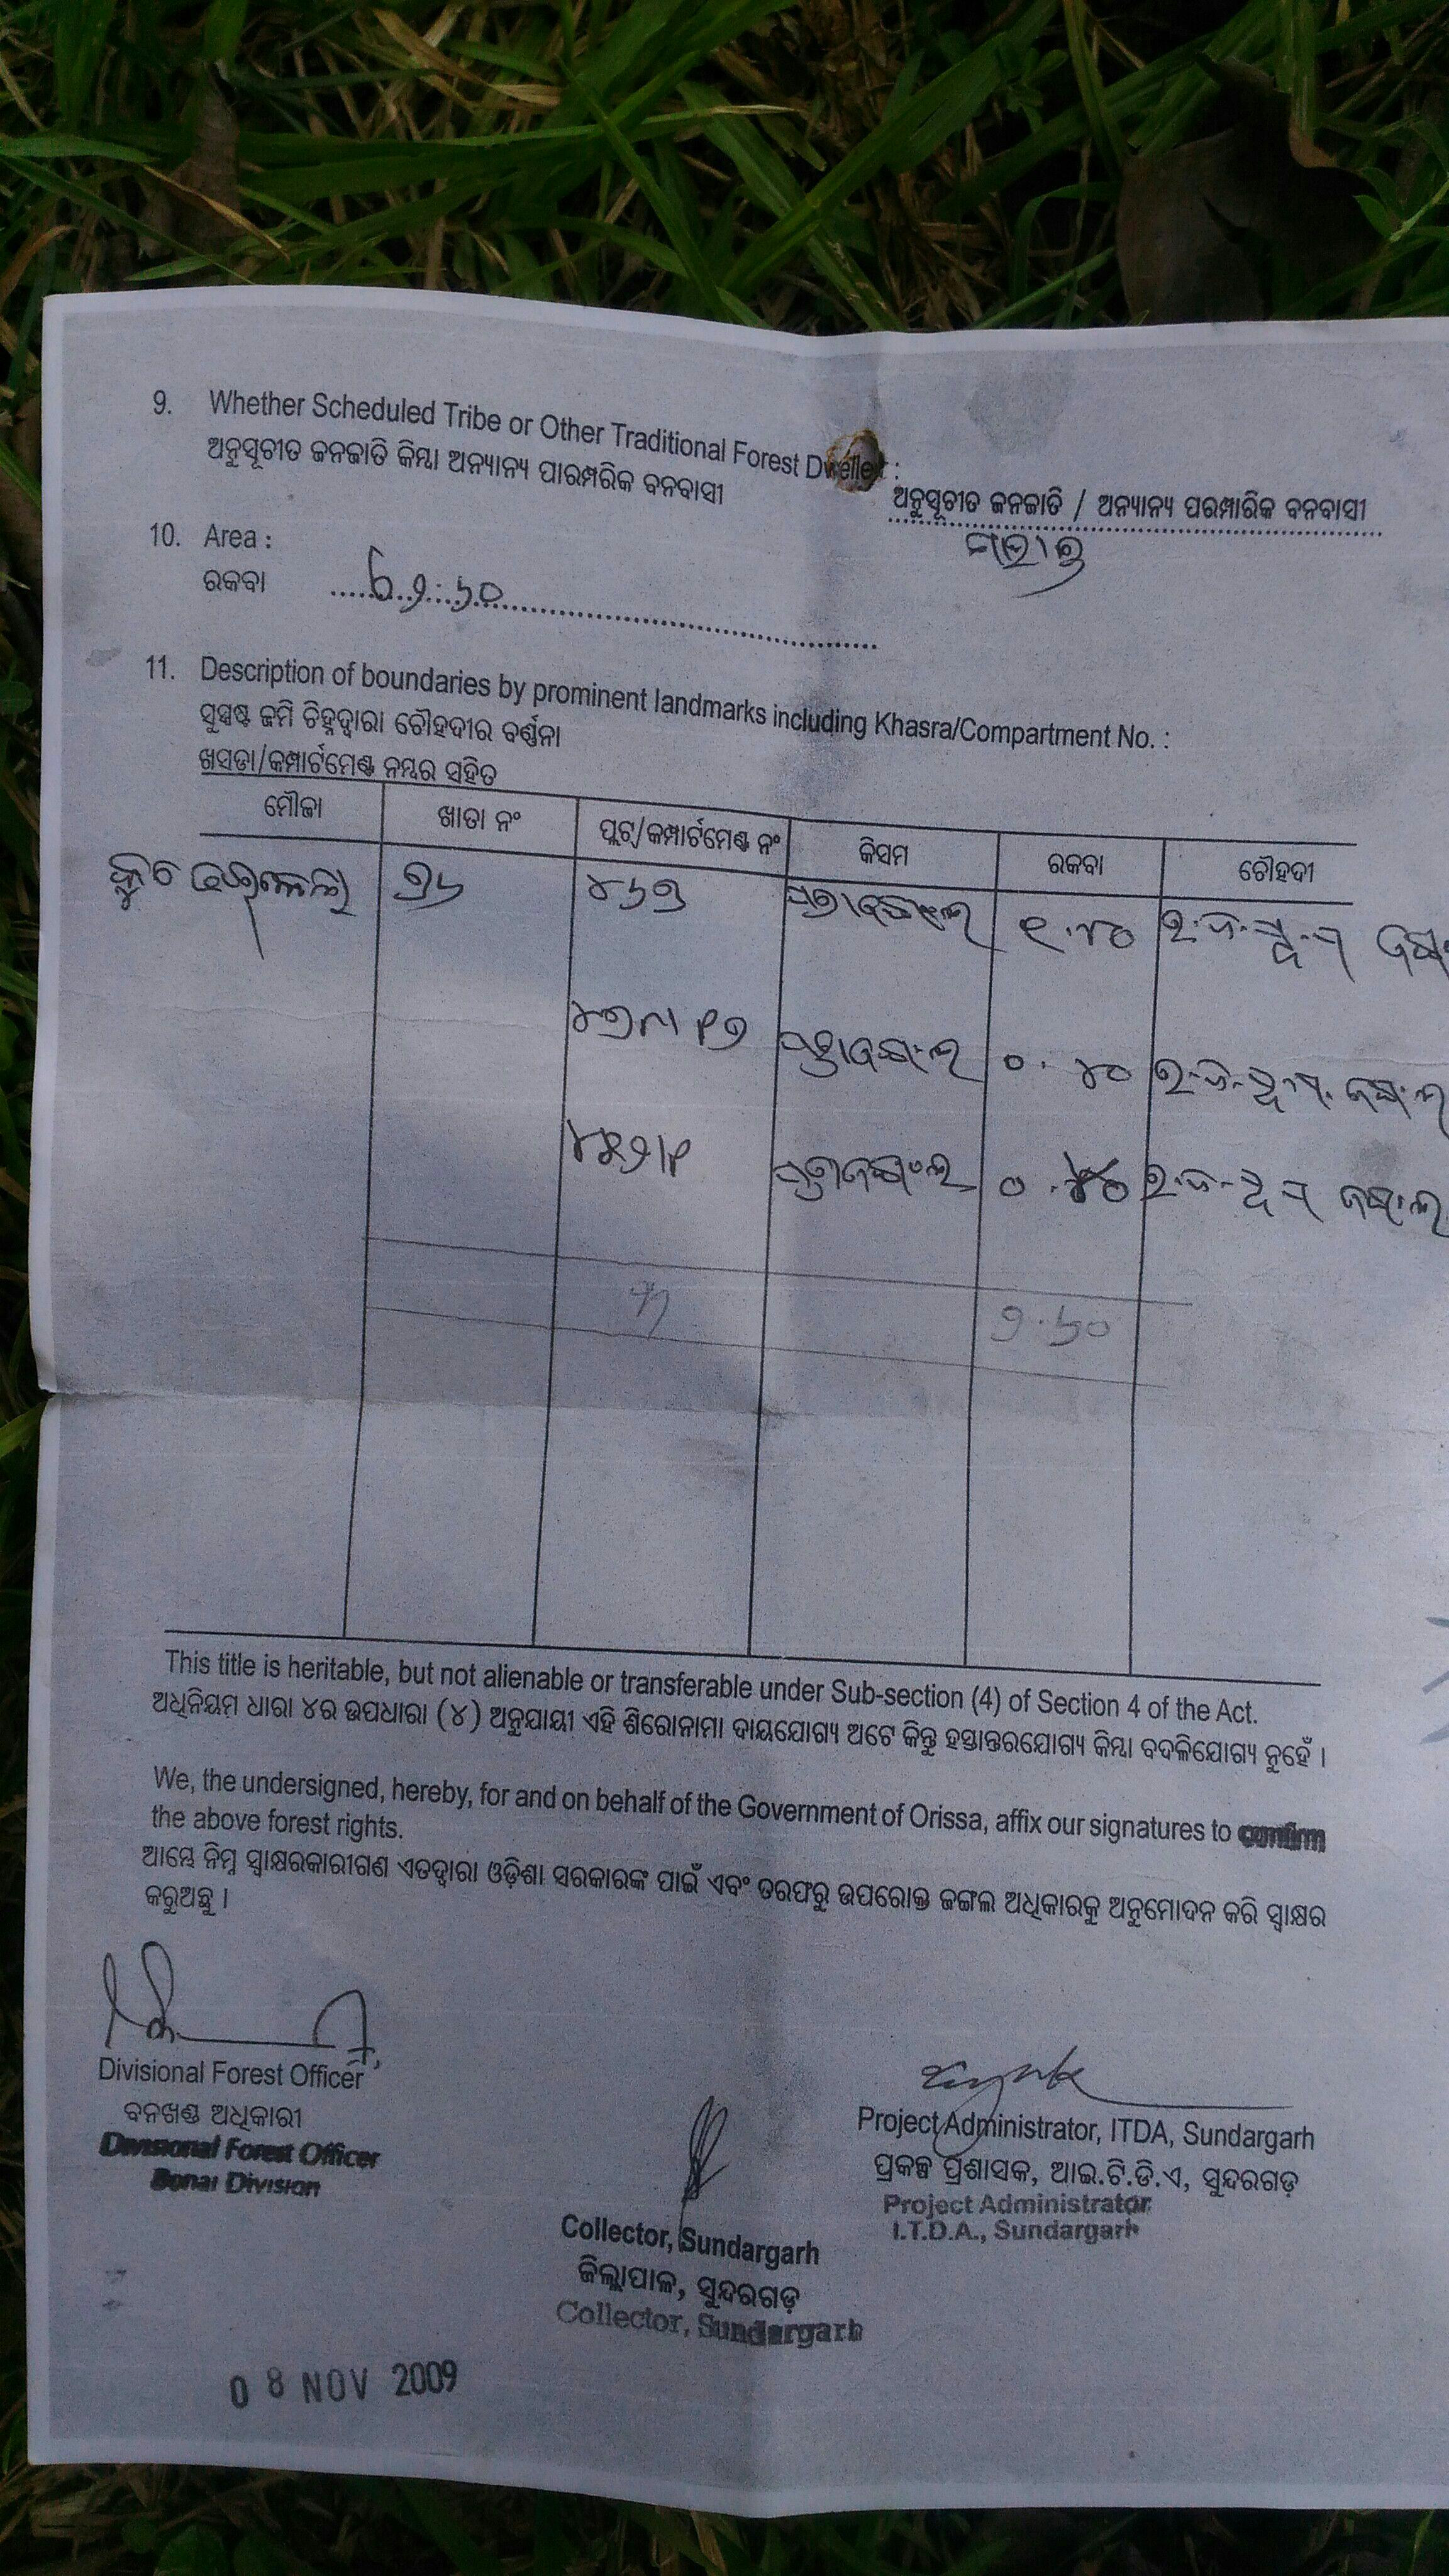 9. Whether Scheduled Tribe or Other Traditional Forest Dweller :
ଅନୁସୂଚୀତ ଜନଜାତି କିମ୍ବା ଅନ୍ୟାନ୍ୟ ପାରମ୍ପରିକ ବନବାସୀ
ଅନୁସୂଚୀତ ଜନଜାତି / ଅନ୍ୟାନ୍ୟ ପରମ୍ପାରିକ ବନବାସୀ
10. Area :
ରକବା
11. Description of boundaries by prominent landmarks including Khasra/Compartment No. :
ସୁସ୍ପଷ୍ଟ ଜମି ଚିହ୍ନଦ୍ୱାରା ଚୌହଦୀର ବର୍ଣ୍ଣନା
ଖସଡା/କମ୍ପାର୍ଟମେଣ୍ଟ ନମ୍ବର ସହିତ
ମୌଜା ଖାତା ନଂ ପ୍ଲଟ୍/କମ୍ପାର୍ଟମେଣ୍ଟ ନଂ କିସମ ରକବା ଚୌହଦୀ
୭୬ ୪୬୭ ୧.୮୦
୦.୪୦
୨.୬୦
This title is heritable, but not alienable or transferable under Sub-section (4) of Section 4 of the Act.
ଅଧିନିୟମ ଧାରା ୪ର ଉପଧାରା (୪) ଅନୁଯାୟୀ ଏହି ଶିରୋନାମା ଦାୟଯୋଗ୍ୟ ଅଟେ କିନ୍ତୁ ହସ୍ତାନ୍ତରଯୋଗ୍ୟ କିମ୍ବା ବଦଳିଯୋଗ୍ୟ ନୁହେଁ ।
We, the undersigned, hereby, for and on behalf of the Government of Orissa, affix our signatures to confirm
the above forest rights.
ଆମ୍ଭେ ନିମ୍ନ ସ୍ୱାକ୍ଷରକାରୀଗଣ ଏତଦ୍ୱାରା ଓଡ଼ିଶା ସରକାରଙ୍କ ପାଇଁ ଏବଂ ତରଫରୁ ଉପରୋକ୍ତ ଜଙ୍ଗଲ ଅଧିକାରକୁ ଅନୁମୋଦନ କରି ସ୍ୱାକ୍ଷର
କରୁଅଛୁ ।
Divisional Forest Officer
ବନଖଣ୍ଡ ଅଧିକାରୀ
Divisional Forest Officer
Bonai Division
Project Administrator, ITDA, Sundargarh
ପ୍ରକଳ୍ପ ପ୍ରଶାସକ, ଆଇ.ଟି.ଡି.ଏ, ସୁନ୍ଦରଗଡ଼
Project Administrator
I.T.D.A., Sundargarh
Collector, Sundargarh
ଜିଲ୍ଲାପାଳ, ସୁନ୍ଦରଗଡ଼
Collector, Sundargarh
08 NOV 2009